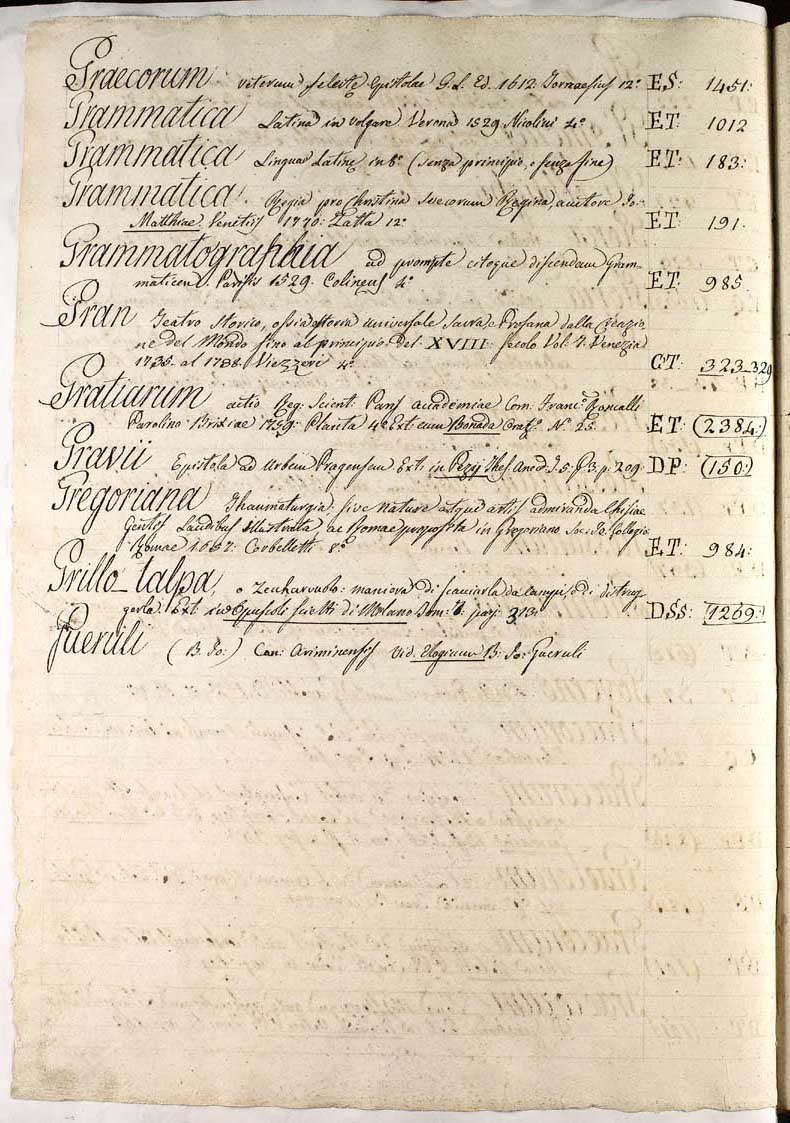 Graecorum veterum selectę Epistolae G. L. Ed. 1612. Tornaesius 12° ES: 1451:
Grammatica Latina in volgare Verona 1529 Nicolini 4° ET: 1012
Grammatica Linguae Latinę in 8° (senza principio, e senza fine) ET: 183:
Grammatica Regia pro Christina Suecorum Regina, auctore Jo:
Matthiae. Venetiis 1770: Zatta 12° ET: 191.
Grammatographia ad prompte citoque discendam Gram=
maticen. Parisiis 1529. Colineus 4° ET: 985.
Gran Teatro Storico, ossia storia universale sacra e Profana dalla Creazio=
ne del Mondo sino al principio del XVIII secolo Vol: 7. Venezia
1738. al 1738. Viezzeri 4° CT: 323_329
Gratiarum actio Reg: Scient: Paris academiae Com: Franc: Roncalli
Parolino Brixiae 1759: Planta 4° Ext: cum Bonada Orat: N° 25. ET: (2384:)
Gravii Epistola ad Urbem Ext: in Pezij Thes. Anecd. T. 5. P. 3. p. 209. DP: (150:)
Gregoriana Thaumaturgia: sive Naturę atque artis admiranda
gentis Laudibus illustrata ac Romae proposita in Gregoriano Soc: Jo: Collegio
Romae 1657: Corbelletti 8° ET: 984:
Grillo_talpa, o Zuccharuola: maniera di scacciarla da campi, o di distrug=
gerla: Ext: in Opuscoli scelti di Milano Tom: 6. pag: 313: DSS: 1269:
Gueruli (B. Jo:) Can: Ariminensis Vid. Elogium B: Jo: Gueruli